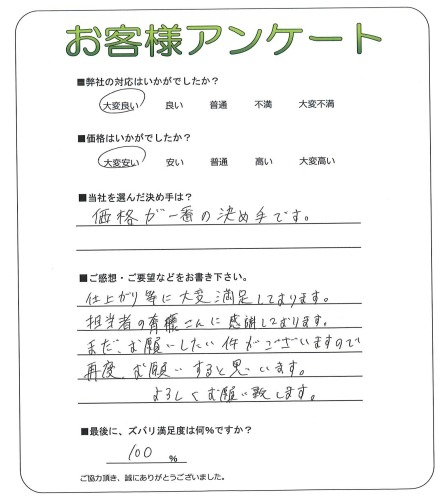 お客様アンケート
■弊社の対応はいかがでしたか？
大変良い 良い 普通 不満 大変不満
■価格はいかがでしたか？
大変安い 安い 普通 高い 大変高い
■当社を選んだ決め手は？
価格が一番の決め手です。
■ご感想・ご要望などをお書き下さい。
仕上がり等に大変満足しております。
担当者の斉藤さんに感謝しております。
まだ、お願いしたい件がございますので
再度、お願いすると思います。
よろしくお願い致します。
■最後に、ズバリ満足度は何%ですか？
100 %
ご協力頂き、誠にありがとうございました。